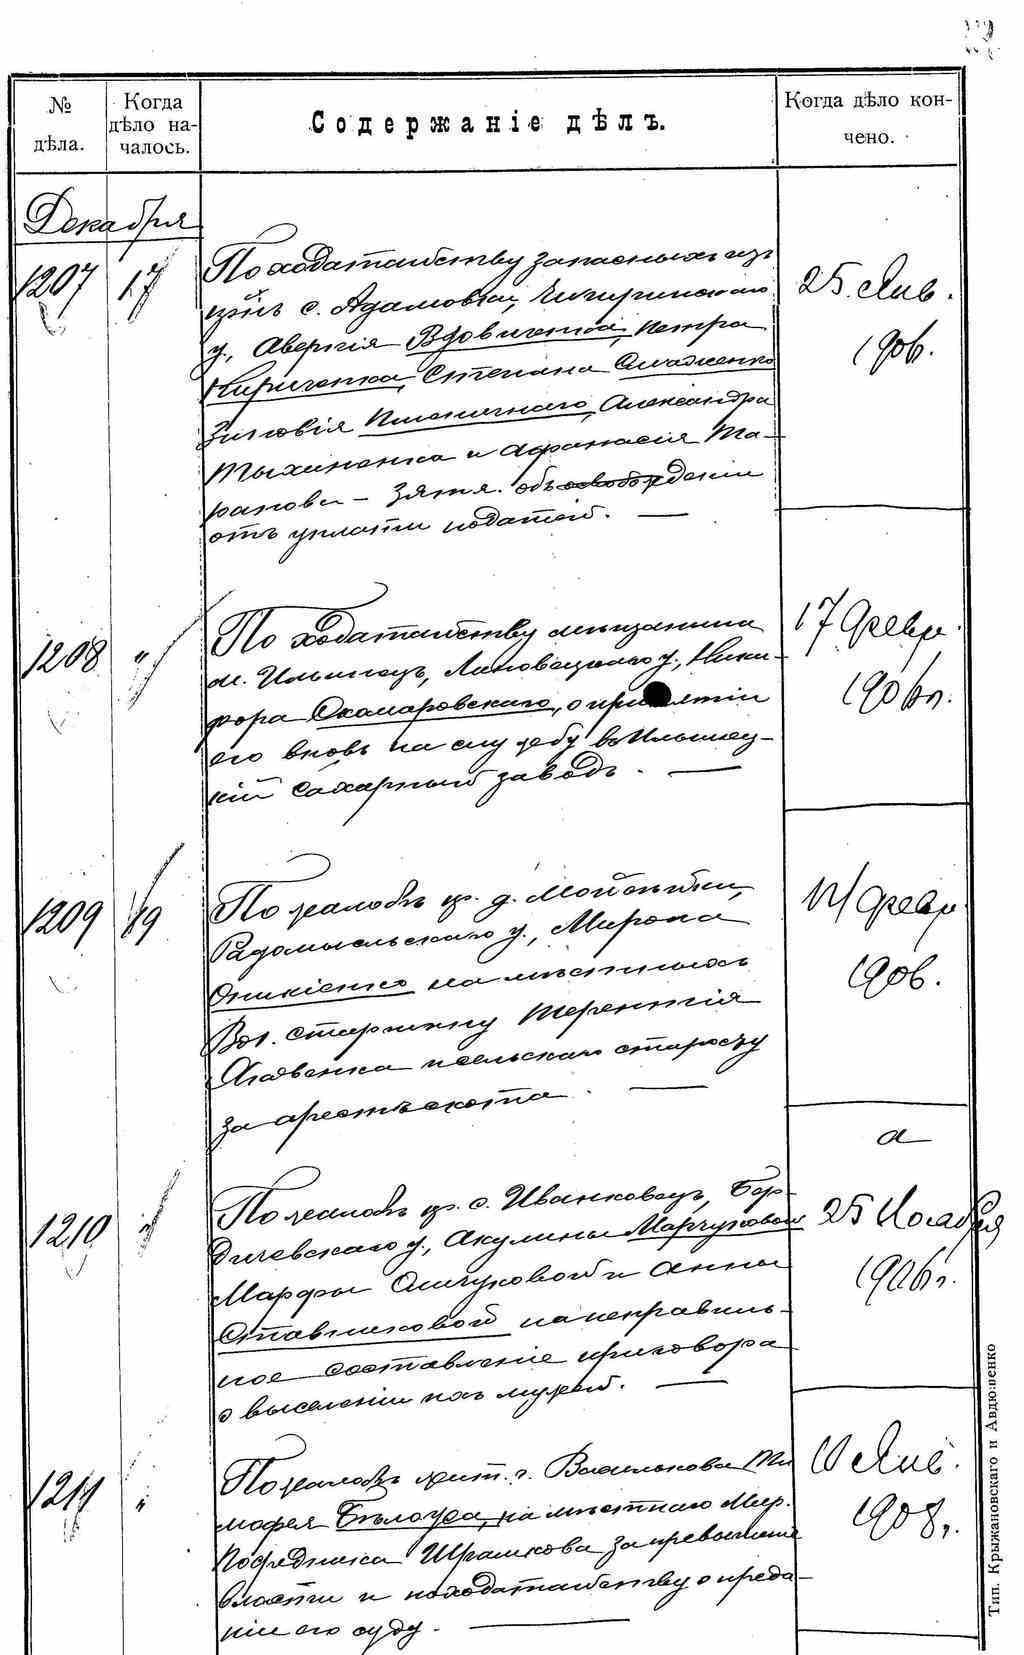 № дѣла.
Когда дѣло на-
чалось.
Содержаніе дѣлъ.
Когда дѣло кон-
чено.
Декабря
1207 17 По ходатайству запасныхъ изъ
с. Адамовки, Чигиринскаго
у., Аверкія Вдовиченка, Петра
Кириченка, Степана
Зиновія Пшеничнаго, Александра
и Афанасія Та-
ранова - Зятя. объ освобожденіи
отъ уплаты податей. —
25. Янв.
1906.
1208 " По ходатайству мѣщанина
м. Ильинецъ, Липовецкаго у., Ники-
фора Скомаровскаго, о принятіи
его вновь на службу въ Ильинец-
кій сахарный заводъ. —
17 Февр.
1906 г.
1209 19 По жалобѣ кр. д.
Радомысльскаго у., Мирона
Оникіенко на мѣстнаго
Вол. старшину Терентія
Яковенка и сельскаго старосту
за арестъ скота. —
Февр.
1906.
1210 " По жалобѣ кр. с. Иванковецъ, Бер-
дичевскаго у., Акулины Марчуковой
Марфы и Анны
Ставниковой на неправиль-
ное составленіе приговора
о выселеніи ихъ мужей. —
25 Ноября
1906 г.
1211 " По жалобѣ жит. г. Василькова Ти-
мофея Бѣлоуса, на мѣстнаго Мир.
Посредника Шрамкова за превышеніе
власти и ходатайству о преда-
ніи его суду. —
10 Янв.
1908 г.
Тип. Крыжановскаго и Авдюшенко